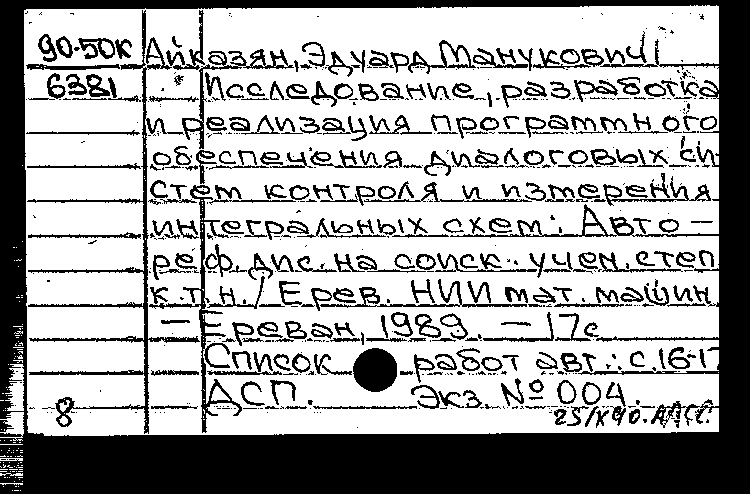 90-50к Айказян, Эдуард Манукович
6381 Исследование, разработка
и реализация программного
обеспечения диалоговых си-
стем контроля и измерения
интегральных схем: Авто-
реф. дис. на соиск. учен. степ.
к.т.н. / Ерев. НИИ мат. машин.
— Ереван, 1989. — 17с
Список работ авт.: с.16-17
ДСП. Экз. № 004.
8 25/X 90.